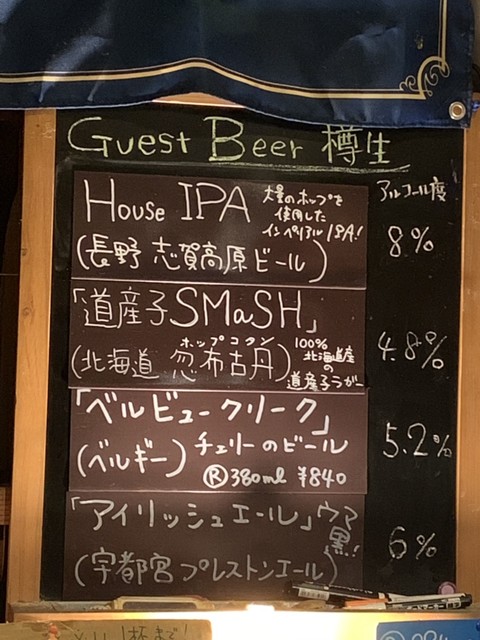 Guest Beer 樽生
アルコール度
House IPA
大量のホップを
使用した
インペリアルIPA!
(長野 志賀高原ビール)
8%
「道産子SMaSH」
ホップコタン
(北海道 忽布古丹)
100%
北海道産
の
道産子ラガー
4.8%
「ベルビュークリーク」
(ベルギー) チェリーのビール
Ⓡ380ml ¥840
5.2%
「アイリッシュエール」ウマ
黒!
(宇都宮 プレストンエール)
6%